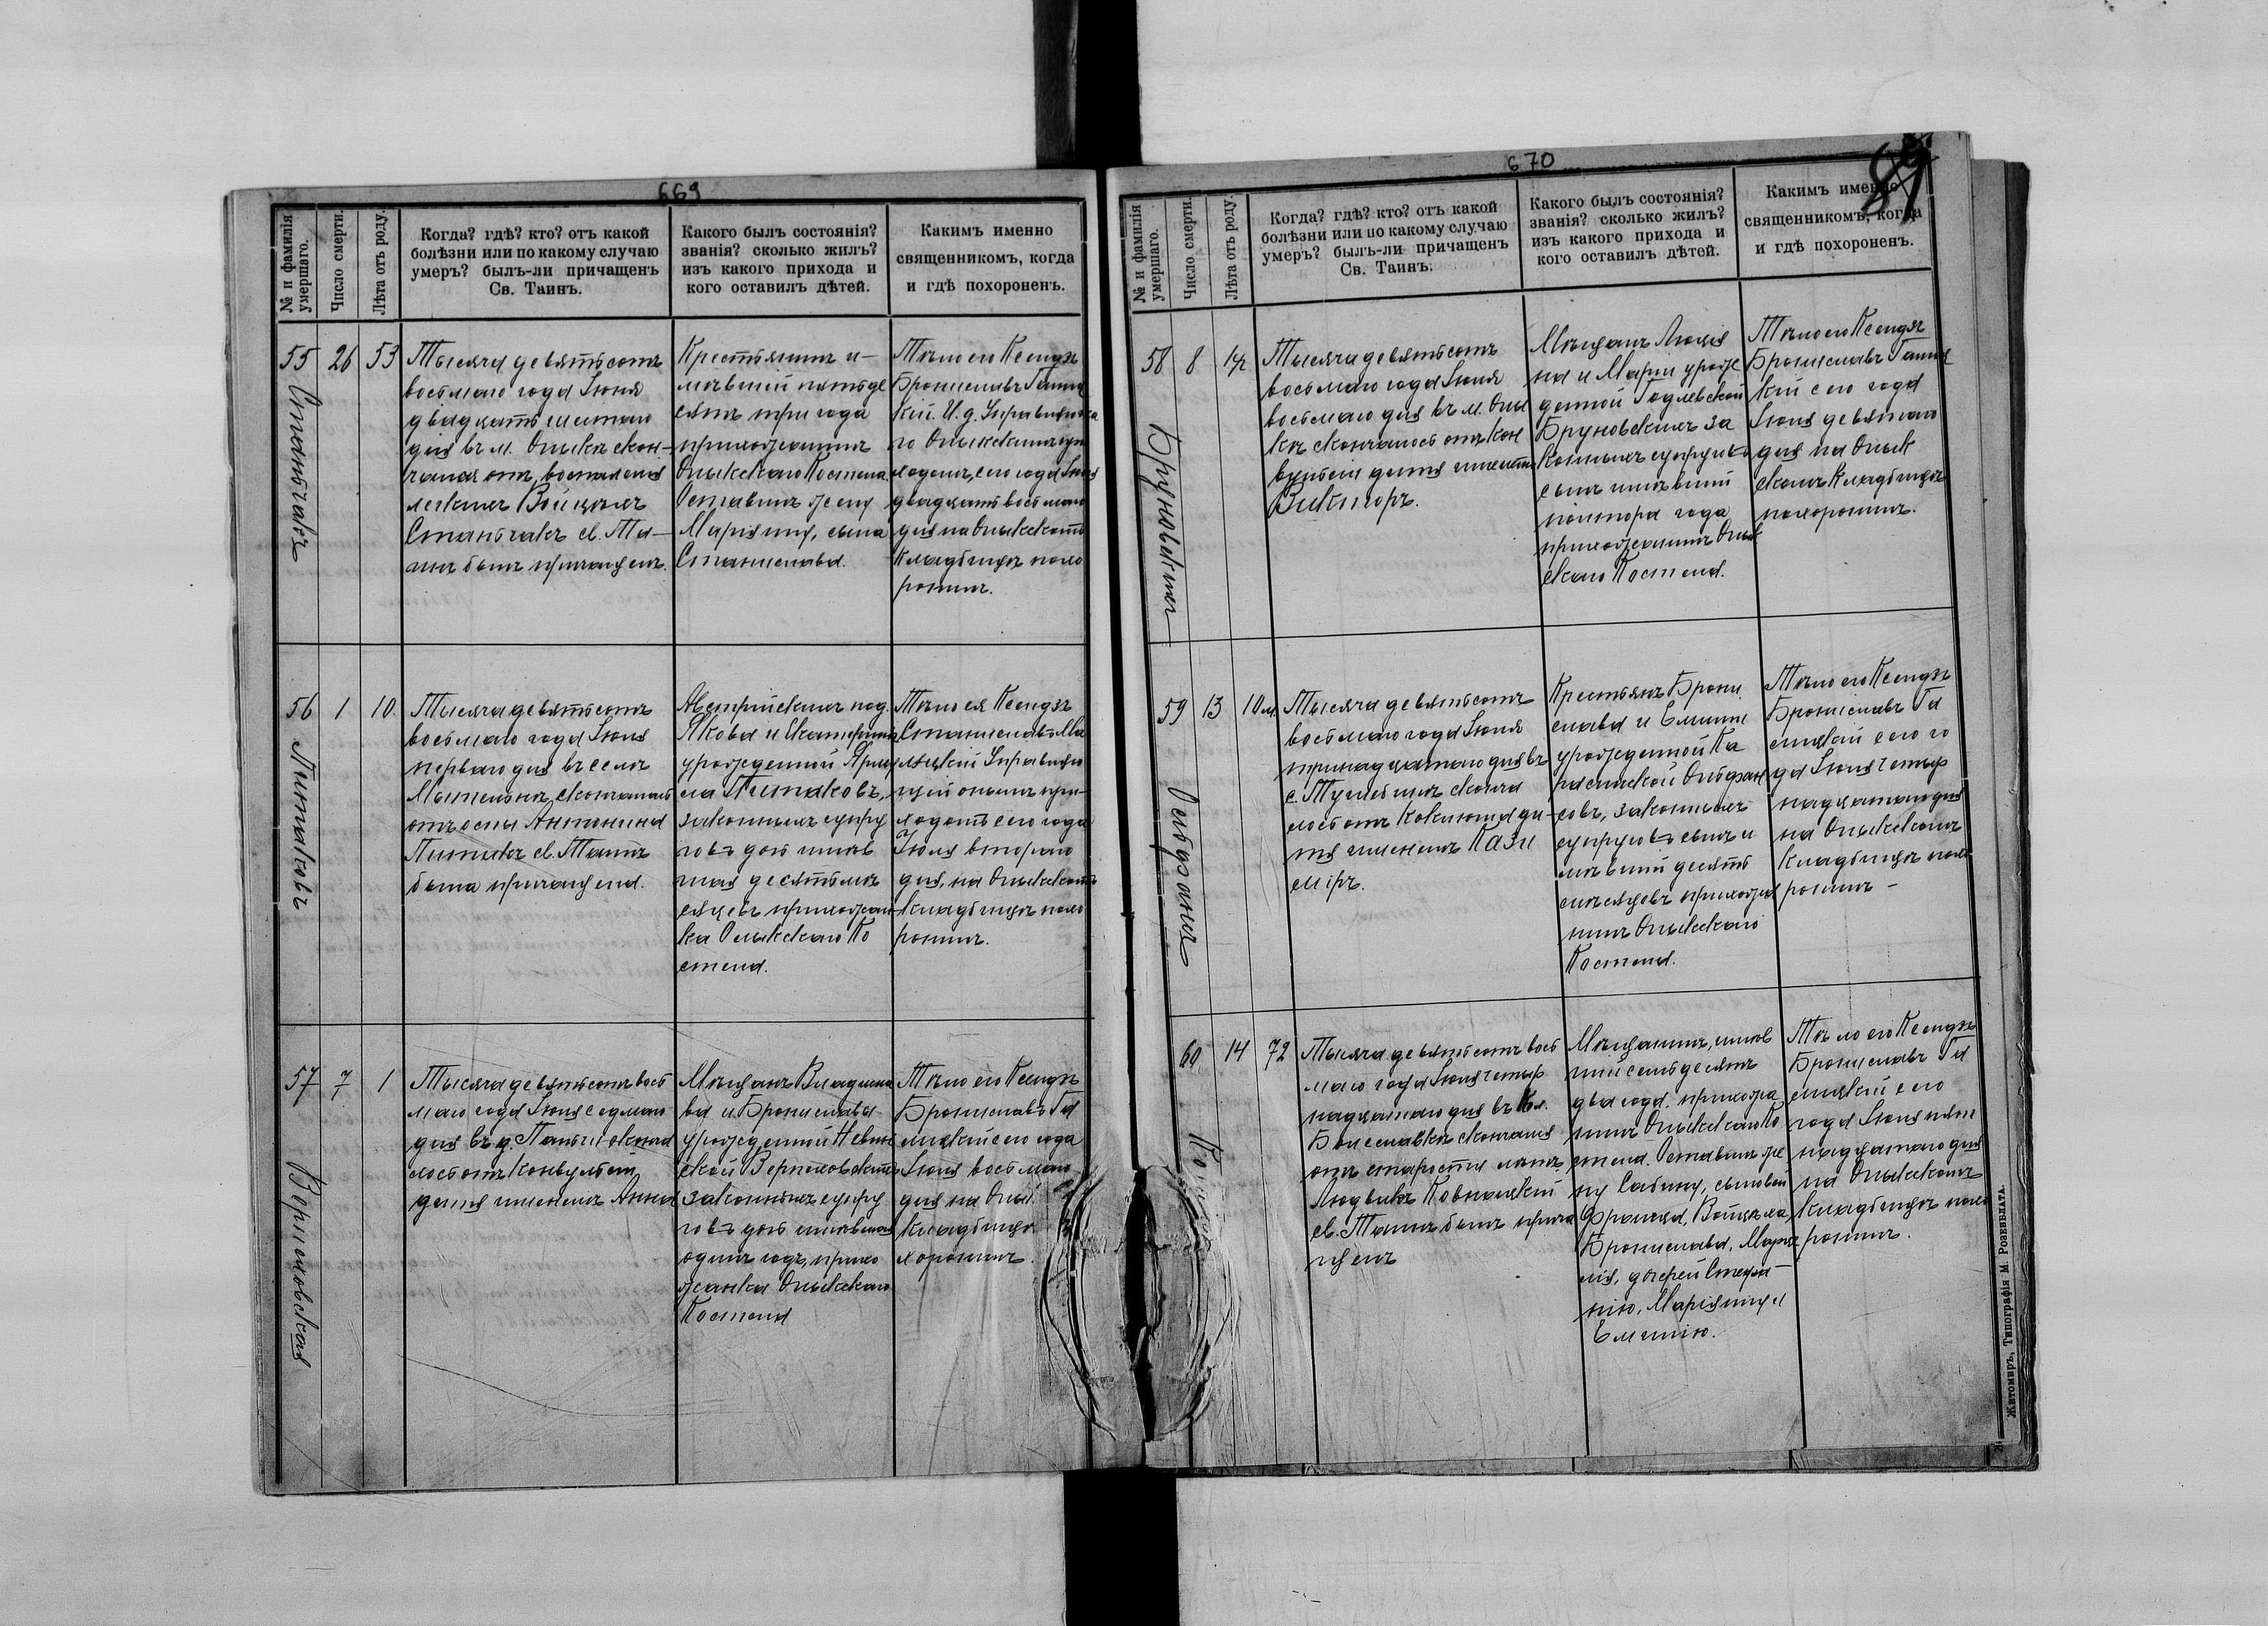 669
№ и фамилія умершаго.
Число смерти.
Лѣта отъ роду.
Когда? гдѣ? кто? отъ какой
болѣзни или по какому случаю
умеръ? былъ-ли причащенъ
Св. Таинъ.
Какого былъ состоянія?
званія? сколько жилъ?
изъ какого прихода и
кого оставилъ дѣтей.
Какимъ именно
священникомъ, когда
и гдѣ похороненъ.
55
Станьчакъ
26
53
Тысяча девятьсотъ
восьмаго года Іюня
двадцать шестаго
дня въ м. Олыкѣ скон-
чался отъ воспаленія
легкихъ Войцѣхъ
Станьчакъ св. Та-
инъ былъ причащенъ.
Крестьянинъ и-
мѣвшій пятьде
сятъ три года
прихожанинъ
Олыкскаго Костела.
Оставилъ жену
Маріянну, сына
Станислава.
Тѣло его Ксендзъ
Брониславъ
кій И. д. Управляюща
го Олыкскимъ при
ходомъ, сего года Іюня
двадцать восьмаго
дня на Олыкскомъ
Кладбищѣ похо
ронилъ.
56
1
10.
Тысяча девятьсотъ
восьмаго года Іюля
перваго дня въ селѣ
скончалась
отъ оспы Антонина
св. Таинъ
была причащена.
Австрійскихъ под.
Якова и Екатерины
урожденной
законныхъ супру
говъ дочь имѣв
шая десять мѣ
сяцевъ прихожан
ка Олыкскаго Ко
стела.
Тѣло ея Ксендзъ
Станиславъ
Управляю
щій онымъ при-
ходомъ сего года
Іюля втораго
дня, на Олыкскомъ
Кладбищѣ похо
ронилъ.
57
7
1
Тысяча девятьсотъ вось
маго года Іюня седмаго
дня въ д. сконча
лась отъ конвульсій
дитя именемъ Анна
Мѣщанъ Владисла
ва и Брониславы
урожденной
ской
законныхъ супру
говъ дочь имѣвшая
одинъ годъ, прихо
жанка Олыкскаго
Костела
Тѣло его Ксендзъ
Брониславъ Га
лицкій сего года
Іюня восьмаго
дня на Олык
Кладбищѣ
хоронилъ.
670
№ и фамилія умершаго.
Число смерти.
Лѣта отъ роду.
Когда? гдѣ? кто? отъ какой
болѣзни или по какому случаю
умеръ? былъ-ли причащенъ
Св. Таинъ.
Какого былъ состоянія?
званія? сколько жилъ?
изъ какого прихода и
кого оставилъ дѣтей.
Какимъ именно
священникомъ, когда
и гдѣ похороненъ.
58
8
Тысяча девятьсотъ
восьмаго года Іюня
восьмаго дня въ м. Олы
кѣ скончалось отъ кон
вульсій дитя именемъ
Викторъ.
Мѣщанъ Люція
на и Маріи урож
денной Годлевской
Бруновскихъ за
конныхъ супруговъ
сынъ имѣвшій
полтора года
прихожанинъ Олык
скаго Костела.
Тѣло его Ксендзъ
Брониславъ
кій сего года
Іюня девятаго
дня на Олык
скомъ Кладбищѣ
похоронилъ.
59
13
10 м.
Тысяча девятьсотъ
восьмаго года Іюня
тринадцатаго дня въ
с. сконча
лось отъ коклюша ди
тя именемъ Кази
міръ.
Крестьянъ Брони
слава и Емиліи
урожденной Ка
законныхъ
супруговъ сынъ и
мѣвшій десять
мѣсяцевъ прихожа
нинъ Олыкскаго
Костела.
Тѣло его Ксендзъ
Брониславъ Га
лицкій сего го
да Іюня четыр
надцатаго дня
на Олыкскомъ
Кладбищѣ похо
ронилъ -
60
14
72
Тысяча девятьсотъ вось
маго года Іюня четыр
надцатаго дня въ
Болеславкѣ скончался
отъ старости лѣтъ
Людвикъ Ковнацкій
св. Таинъ былъ прича
щенъ
Мѣщанинъ, имѣв
шій семьдесятъ
два года. прихожа
нинъ Олыкскаго Ко
стела. Оставилъ же
ну Сабину, сыновей
Франца, Войцѣха,
Бронислава,
дочерей Стефа-
нію, Маріянну и
Емилію.
Тѣло его Ксендзъ
Брониславъ Га
лицкій сего
года Іюня пят
надцатаго дня
на Олыкскомъ
Кладбищѣ похо
ронилъ.
Житомиръ, Типографія М. Розенбла.